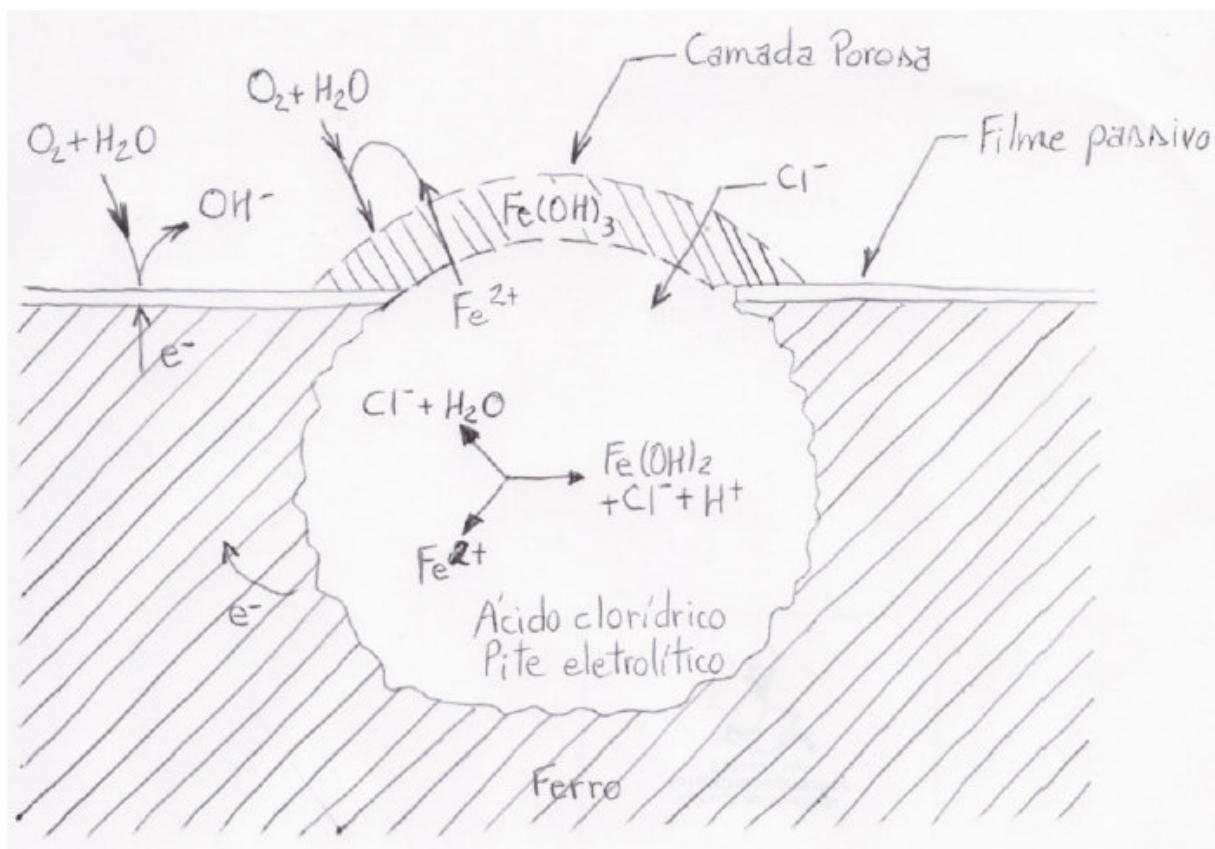 Camada Porosa
O₂+H₂O
O₂+H₂O
Filme passivo
OH⁻
Cl⁻
Fe(OH)₃
Fe²⁺
e⁻
Cl⁻+H₂O
Fe(OH)₂
+Cl⁻+H⁺
Fe²⁺
e⁻
Ácido clorídrico
Pite eletrolítico
Ferro